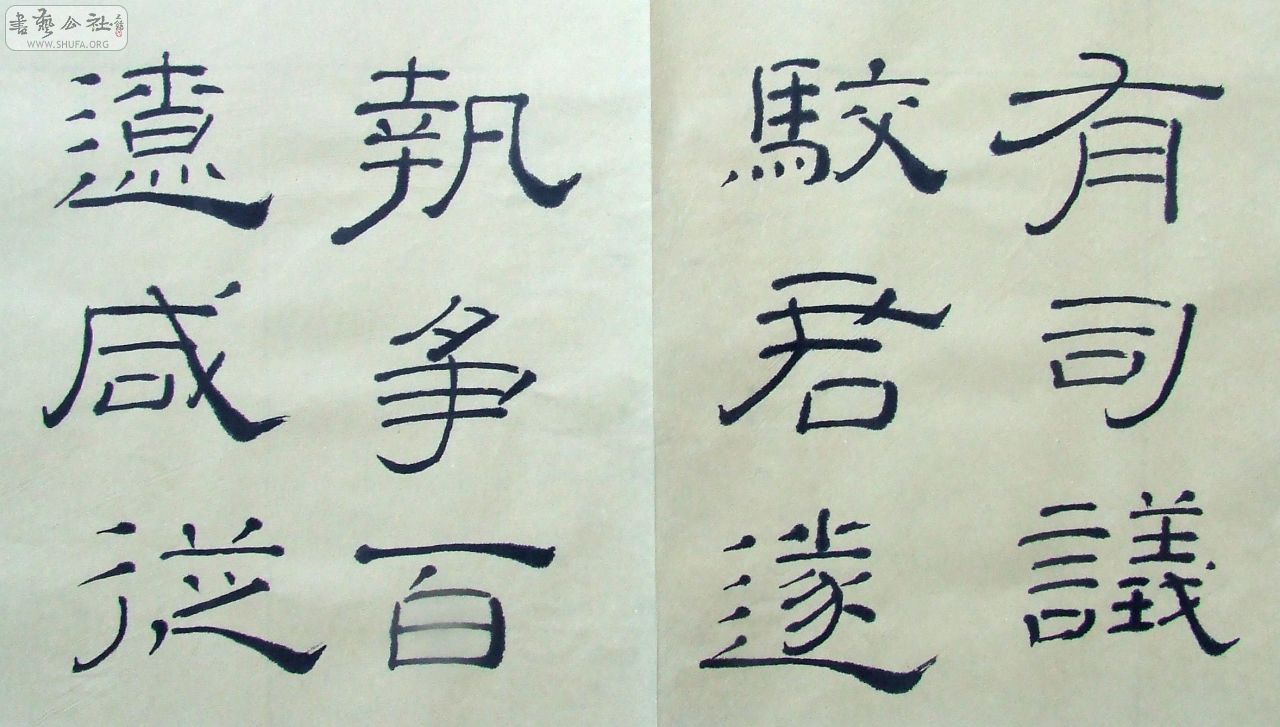 書藝公社
WWW.SHUFA.ORG
有司議
駮君遂
執爭百
遼咸從